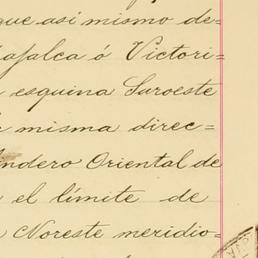 que así mismo de=
ajalca ó Victori=
esquina Suroeste
misma direc=
indero Oriental de
el límite de
Noreste meridio=